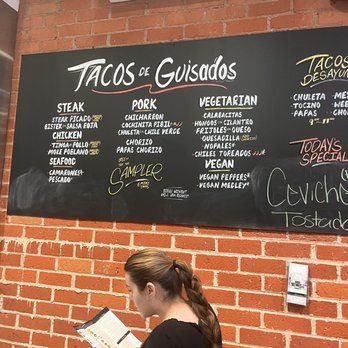 TACOS DE GUISADOS
STEAK
STEAK PICADO
BISTEK-SALSA ROJA
CHICKEN
TINGA-POLLO
MOLE POBLANO
SEAFOOD
CAMARONES
PESCADO
PORK
CHICHARRON
COCHINITA PIBIL
CHULETA-CHILE VERDE
CHORIZO
PAPAS CHORIZO
SAMPLER
VEGETARIAN
CALABACITAS
HONGOS-CILANTRO
FRIJOLES-QUESO
QUESADILLA
NOPALES
CHILES TOREADOS
VEGAN
VEGAN FEFFERS
VEGAN MEDLEY
TACOS
DESAYUN
CHULETA
TOCINO
PAPAS
TODAYS
SPECIAL
Ceviche
Tostada